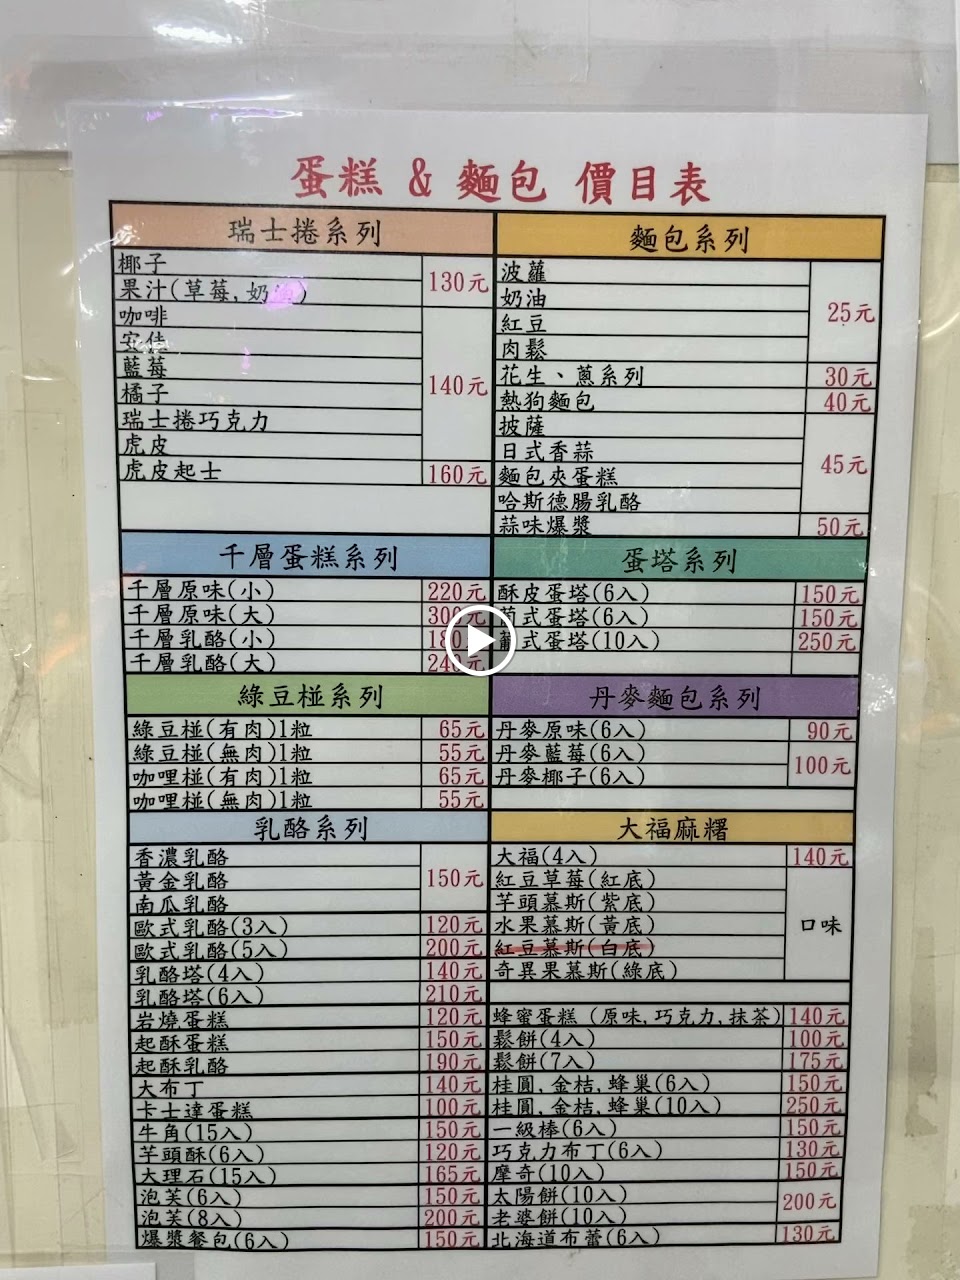 蛋糕 & 麵包 價目表
瑞士捲系列
椰子
果汁(草莓,奶油)
130元
咖啡
安佳
藍莓
橘子
瑞士捲巧克力
虎皮
140元
虎皮起士 160元
麵包系列
波蘿
奶油
紅豆
肉鬆
25元
花生、蔥系列 30元
熱狗麵包 40元
披薩
日式香蒜
麵包夾蛋糕
哈斯德腸乳酪
45元
蒜味爆漿 50元
千層蛋糕系列
千層原味(小) 220元
千層原味(大) 300元
千層乳酪(小) 180元
千層乳酪(大) 240元
蛋塔系列
酥皮蛋塔(6入) 150元
葡式蛋塔(6入) 150元
葡式蛋塔(10入) 250元
綠豆椪系列
綠豆椪(有肉)1粒 65元
綠豆椪(無肉)1粒 55元
咖哩椪(有肉)1粒 65元
咖哩椪(無肉)1粒 55元
丹麥麵包系列
丹麥原味(6入) 90元
丹麥藍莓(6入)
丹麥椰子(6入)
100元
乳酪系列
香濃乳酪
黃金乳酪
南瓜乳酪
150元
歐式乳酪(3入) 120元
歐式乳酪(5入) 200元
乳酪塔(4入) 140元
乳酪塔(6入) 210元
岩燒蛋糕 120元
起酥蛋糕 150元
起酥乳酪 190元
大布丁 140元
卡士達蛋糕 100元
牛角(15入) 150元
芋頭酥(6入) 120元
大理石(15入) 165元
泡芙(6入) 150元
泡芙(8入) 200元
爆漿餐包(6入) 150元
大福麻糬
大福(4入) 140元
紅豆草莓(紅底)
芋頭慕斯(紫底)
水果慕斯(黃底)
紅豆慕斯(白底)
奇異果慕斯(綠底)
口味
蜂蜜蛋糕 (原味,巧克力,抹茶) 140元
鬆餅(4入) 100元
鬆餅(7入) 175元
桂圓,金桔,蜂巢(6入) 150元
桂圓,金桔,蜂巢(10入) 250元
一級棒(6入) 150元
巧克力布丁(6入) 130元
摩奇(10入) 150元
太陽餅(10入)
老婆餅(10入)
200元
北海道布蕾(6入) 130元